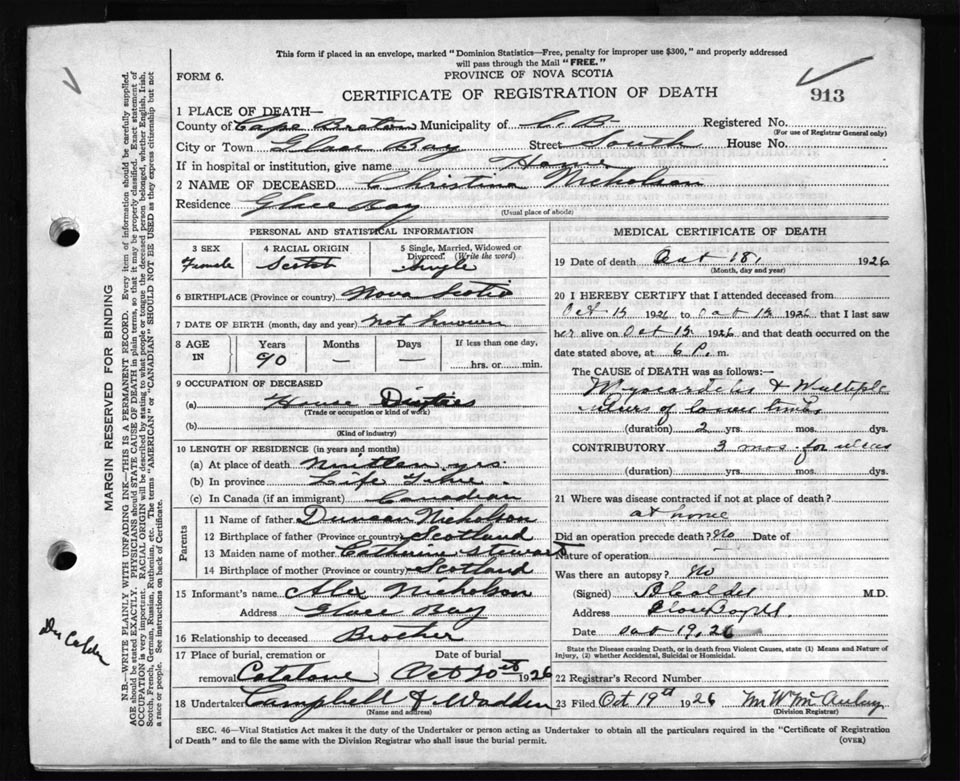 This form if placed in an envelope, marked "Dominion Statistics—Free, penalty for improper use $300," and properly addressed
will pass through the Mail "FREE."
FORM 6.
PROVINCE OF NOVA SCOTIA
CERTIFICATE OF REGISTRATION OF DEATH
913
1 PLACE OF DEATH—
County of Cape Breton Municipality of C. B. Registered No.
(For use of Registrar General only)
City or Town Glace Bay Street South House No.
If in hospital or institution, give name Home
2 NAME OF DECEASED Christina Nicholson
Residence Glace Bay
(Usual place of abode)
PERSONAL AND STATISTICAL INFORMATION
3 SEX 4 RACIAL ORIGIN 5 Single, Married, Widowed or
Divorced. (Write the word)
Female Scotch Single
6 BIRTHPLACE (Province or country) Nova Scotia
7 DATE OF BIRTH (month, day and year) not known
8 AGE IN Years Months Days If less than one day,
90 — — hrs. or min.
9 OCCUPATION OF DECEASED
(a) House Duties
(Trade or occupation or kind of work)
(b)
(Kind of industry)
10 LENGTH OF RESIDENCE (in years and months)
(a) At place of death yrs.
(b) In province Life Time.
(c) In Canada (if an immigrant) Canadian
Parents
11 Name of father Duncan Nicholson
12 Birthplace of father (Province or country) Scotland
13 Maiden name of mother Catherine Stewart
14 Birthplace of mother (Province or country) Scotland
15 Informant's name Alex Nicholson
Address Glace Bay
16 Relationship to deceased Brother
17 Place of burial, cremation or Date of burial
removal Catalone Oct 20th 1926
18 Undertaker Campbell & Wadden
(Name and address)
MEDICAL CERTIFICATE OF DEATH
19 Date of death Oct 18, 1926
(Month, day and year)
20 I HEREBY CERTIFY that I attended deceased from
Oct 15 1926 to Oct 15 1926 that I last saw
her alive on Oct 15 1926 and that death occurred on the
date stated above, at 6 P. m.
The CAUSE OF DEATH was as follows:—
Myocarditis & Multiple
ulcers of lower limbs
(duration) 2 yrs. mos. dys.
CONTRIBUTORY 3 mos. for ulcers
(duration) yrs. mos. dys.
21 Where was disease contracted if not at place of death?
at home
Did an operation precede death? No Date of
Nature of operation
Was there an autopsy? No
(Signed) Calder M.D.
Address Glace Bay N.S.
Date Oct 19, 26
State the Disease causing Death, or in death from Violent Causes, state (1) Means and Nature of
Injury, (2) whether Accidental, Suicidal or Homicidal.
22 Registrar's Record Number
23 Filed Oct 19th 1926
(Division Registrar)
SEC. 46—Vital Statistics Act makes it the duty of the Undertaker or person acting as Undertaker to obtain all the particulars required in the "Certificate of Registration
of Death" and to file the same with the Division Registrar who shall issue the burial permit.
(OVER)
MARGIN RESERVED FOR BINDING
N.B.—WRITE PLAINLY WITH UNFADING INK—THIS IS A PERMANENT RECORD. Every item of information should be carefully supplied.
AGE should be stated EXACTLY. PHYSICIANS should STATE CAUSE OF DEATH in plain terms, so that it may be properly classified. Exact statement of
OCCUPATION is very important. RACIAL ORIGIN will be described by stating to what people or tongue the deceased person belonged, whether English, Irish,
Scotch, French, German, Russian, Ruthenian, etc. The terms "AMERICAN" or "CANADIAN" SHOULD NOT BE USED as they express citizenship but not
a race or people. See instructions on back of Certificate.
Dr Calder